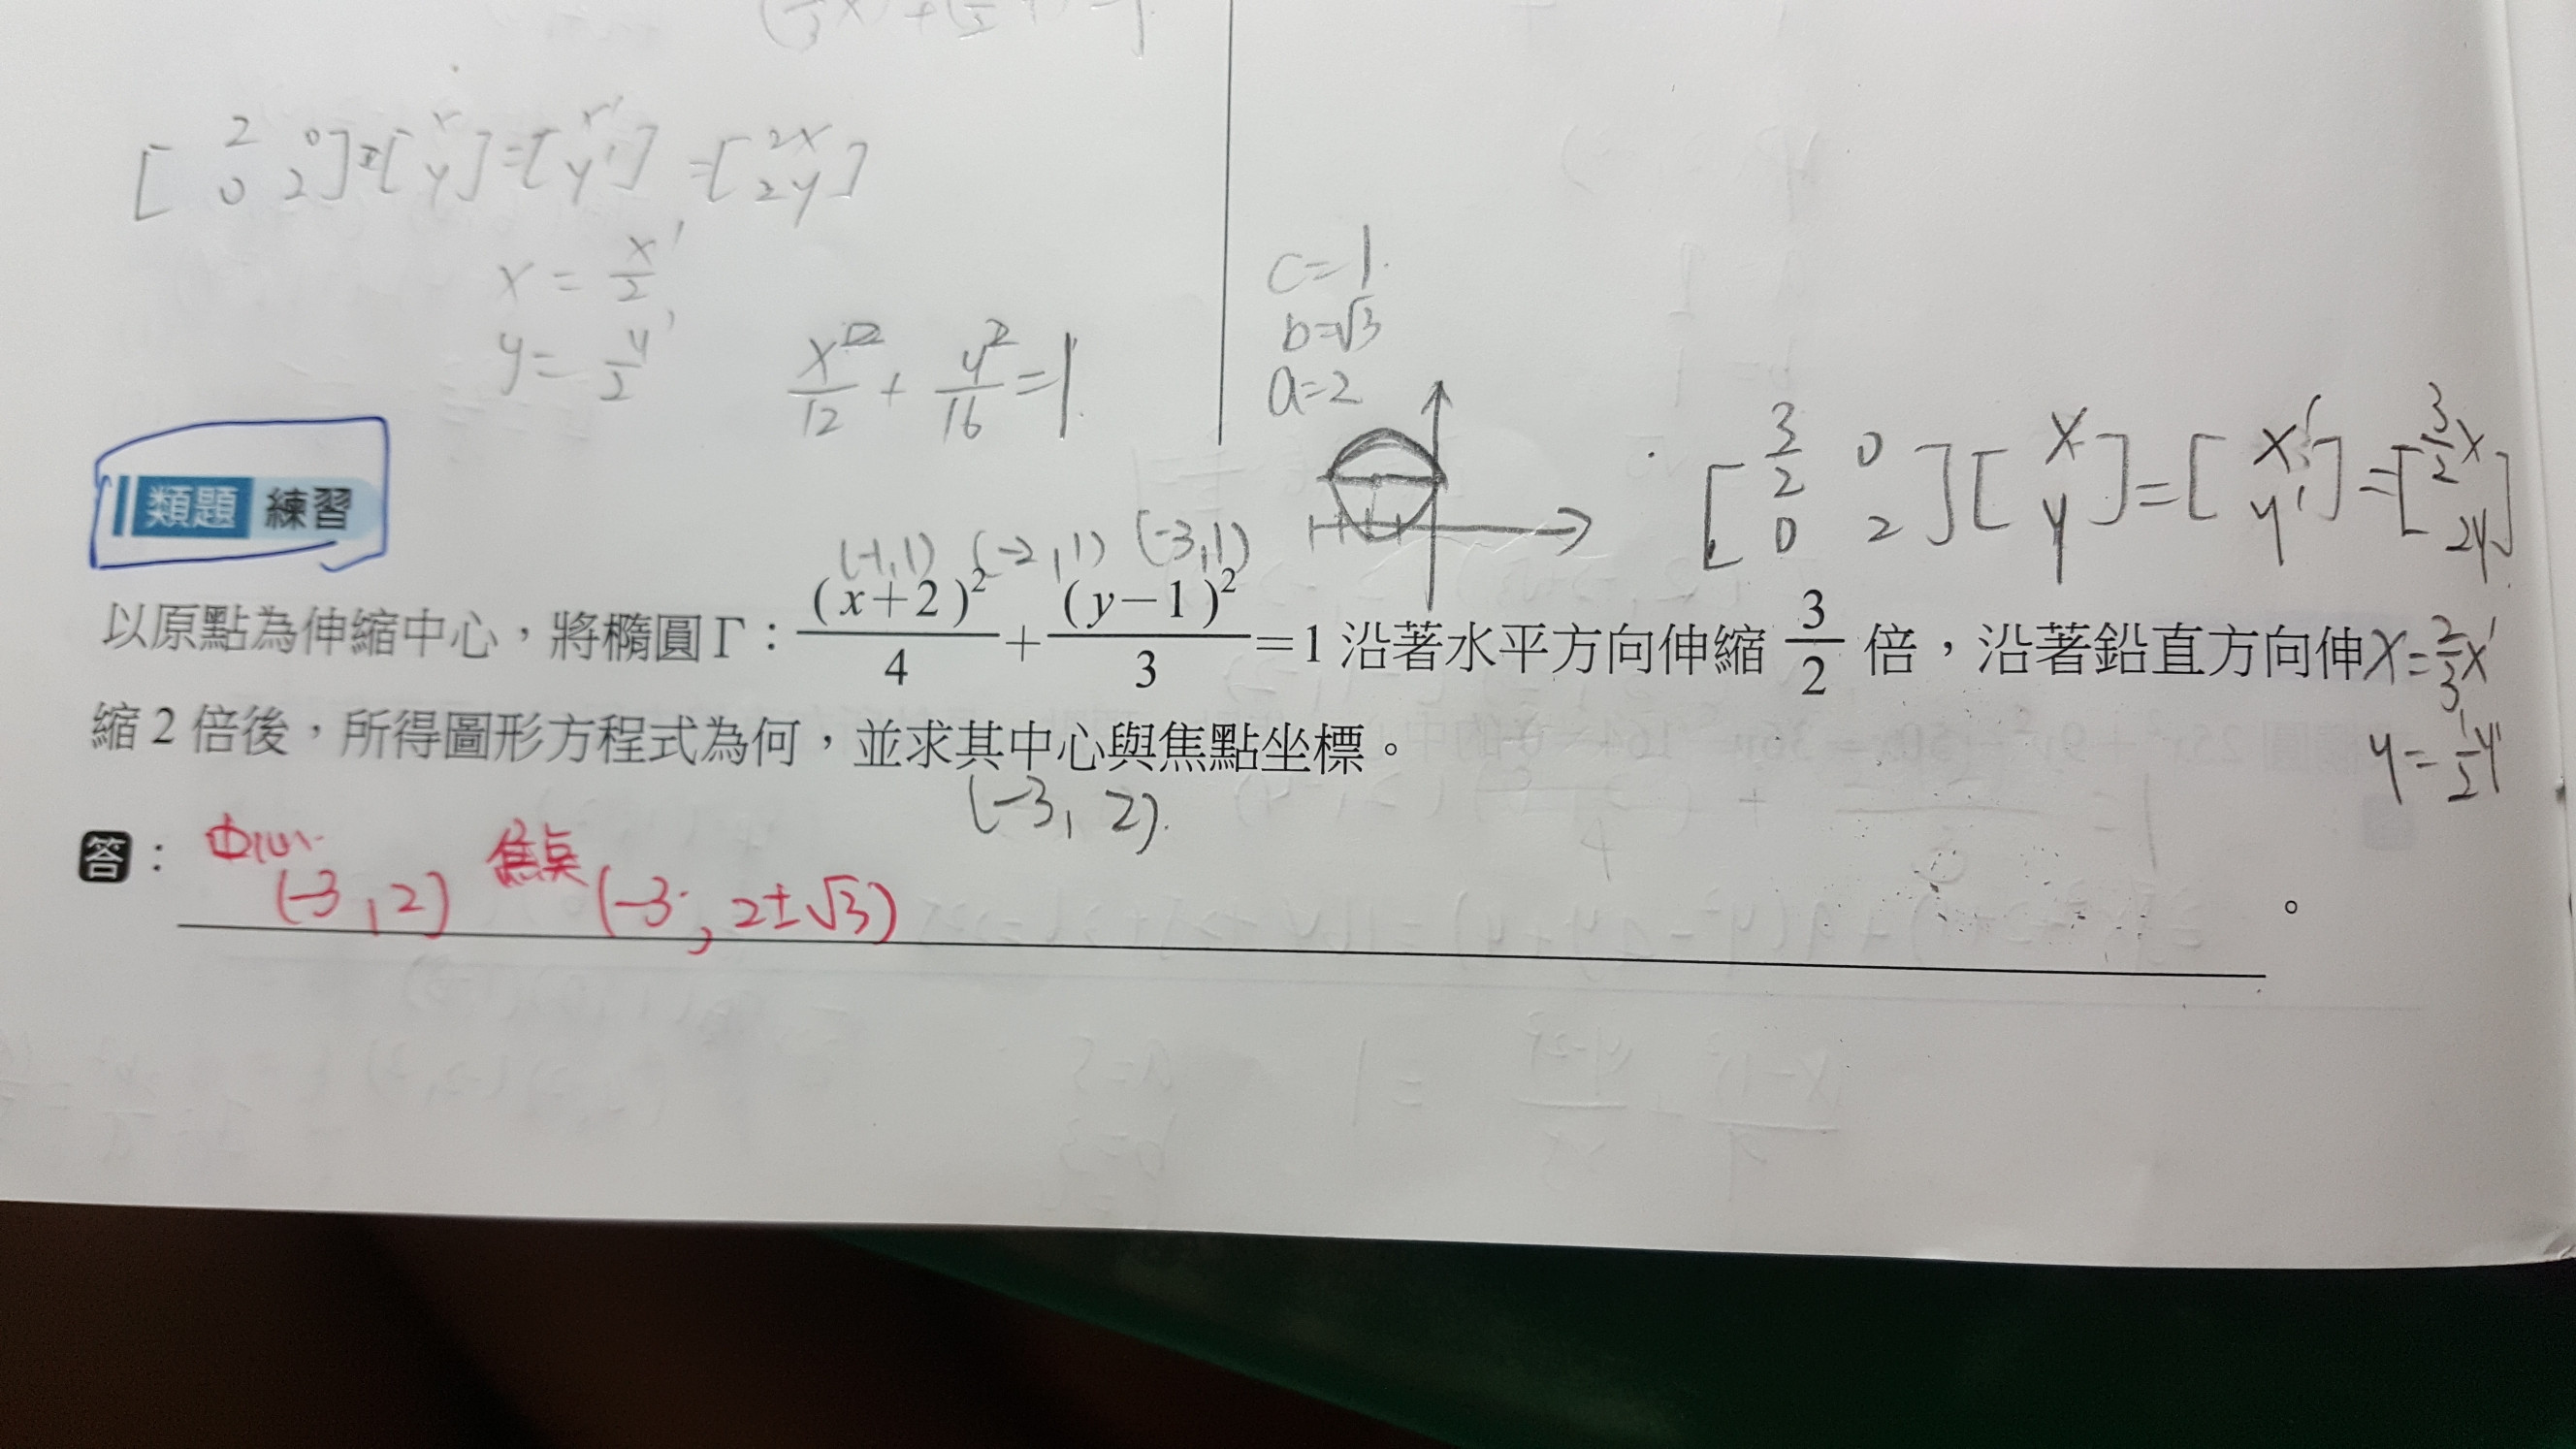 [2 0
0 2][x
y]=[x'
y']=[2x
2y]
x=x'/2
y=y'/2
x²/12+y²/16=1
c=1
b=√3
a=2
[3/2 0
0 2][x
y]=[x'
y']=[3/2x
2y]
類題 練習
(-1,1) (-2,1) (-3,1)
以原點為伸縮中心，將橢圓Γ：(x+2)²/4+(y-1)²/3=1沿著水平方向伸縮3/2倍，沿著鉛直方向伸
x=2/3x'
縮2倍後，所得圖形方程式為何，並求其中心與焦點坐標。
y=1/2y'
(-3,2).
答：中心 (-3,2) 焦点 (-3,2±√3)。